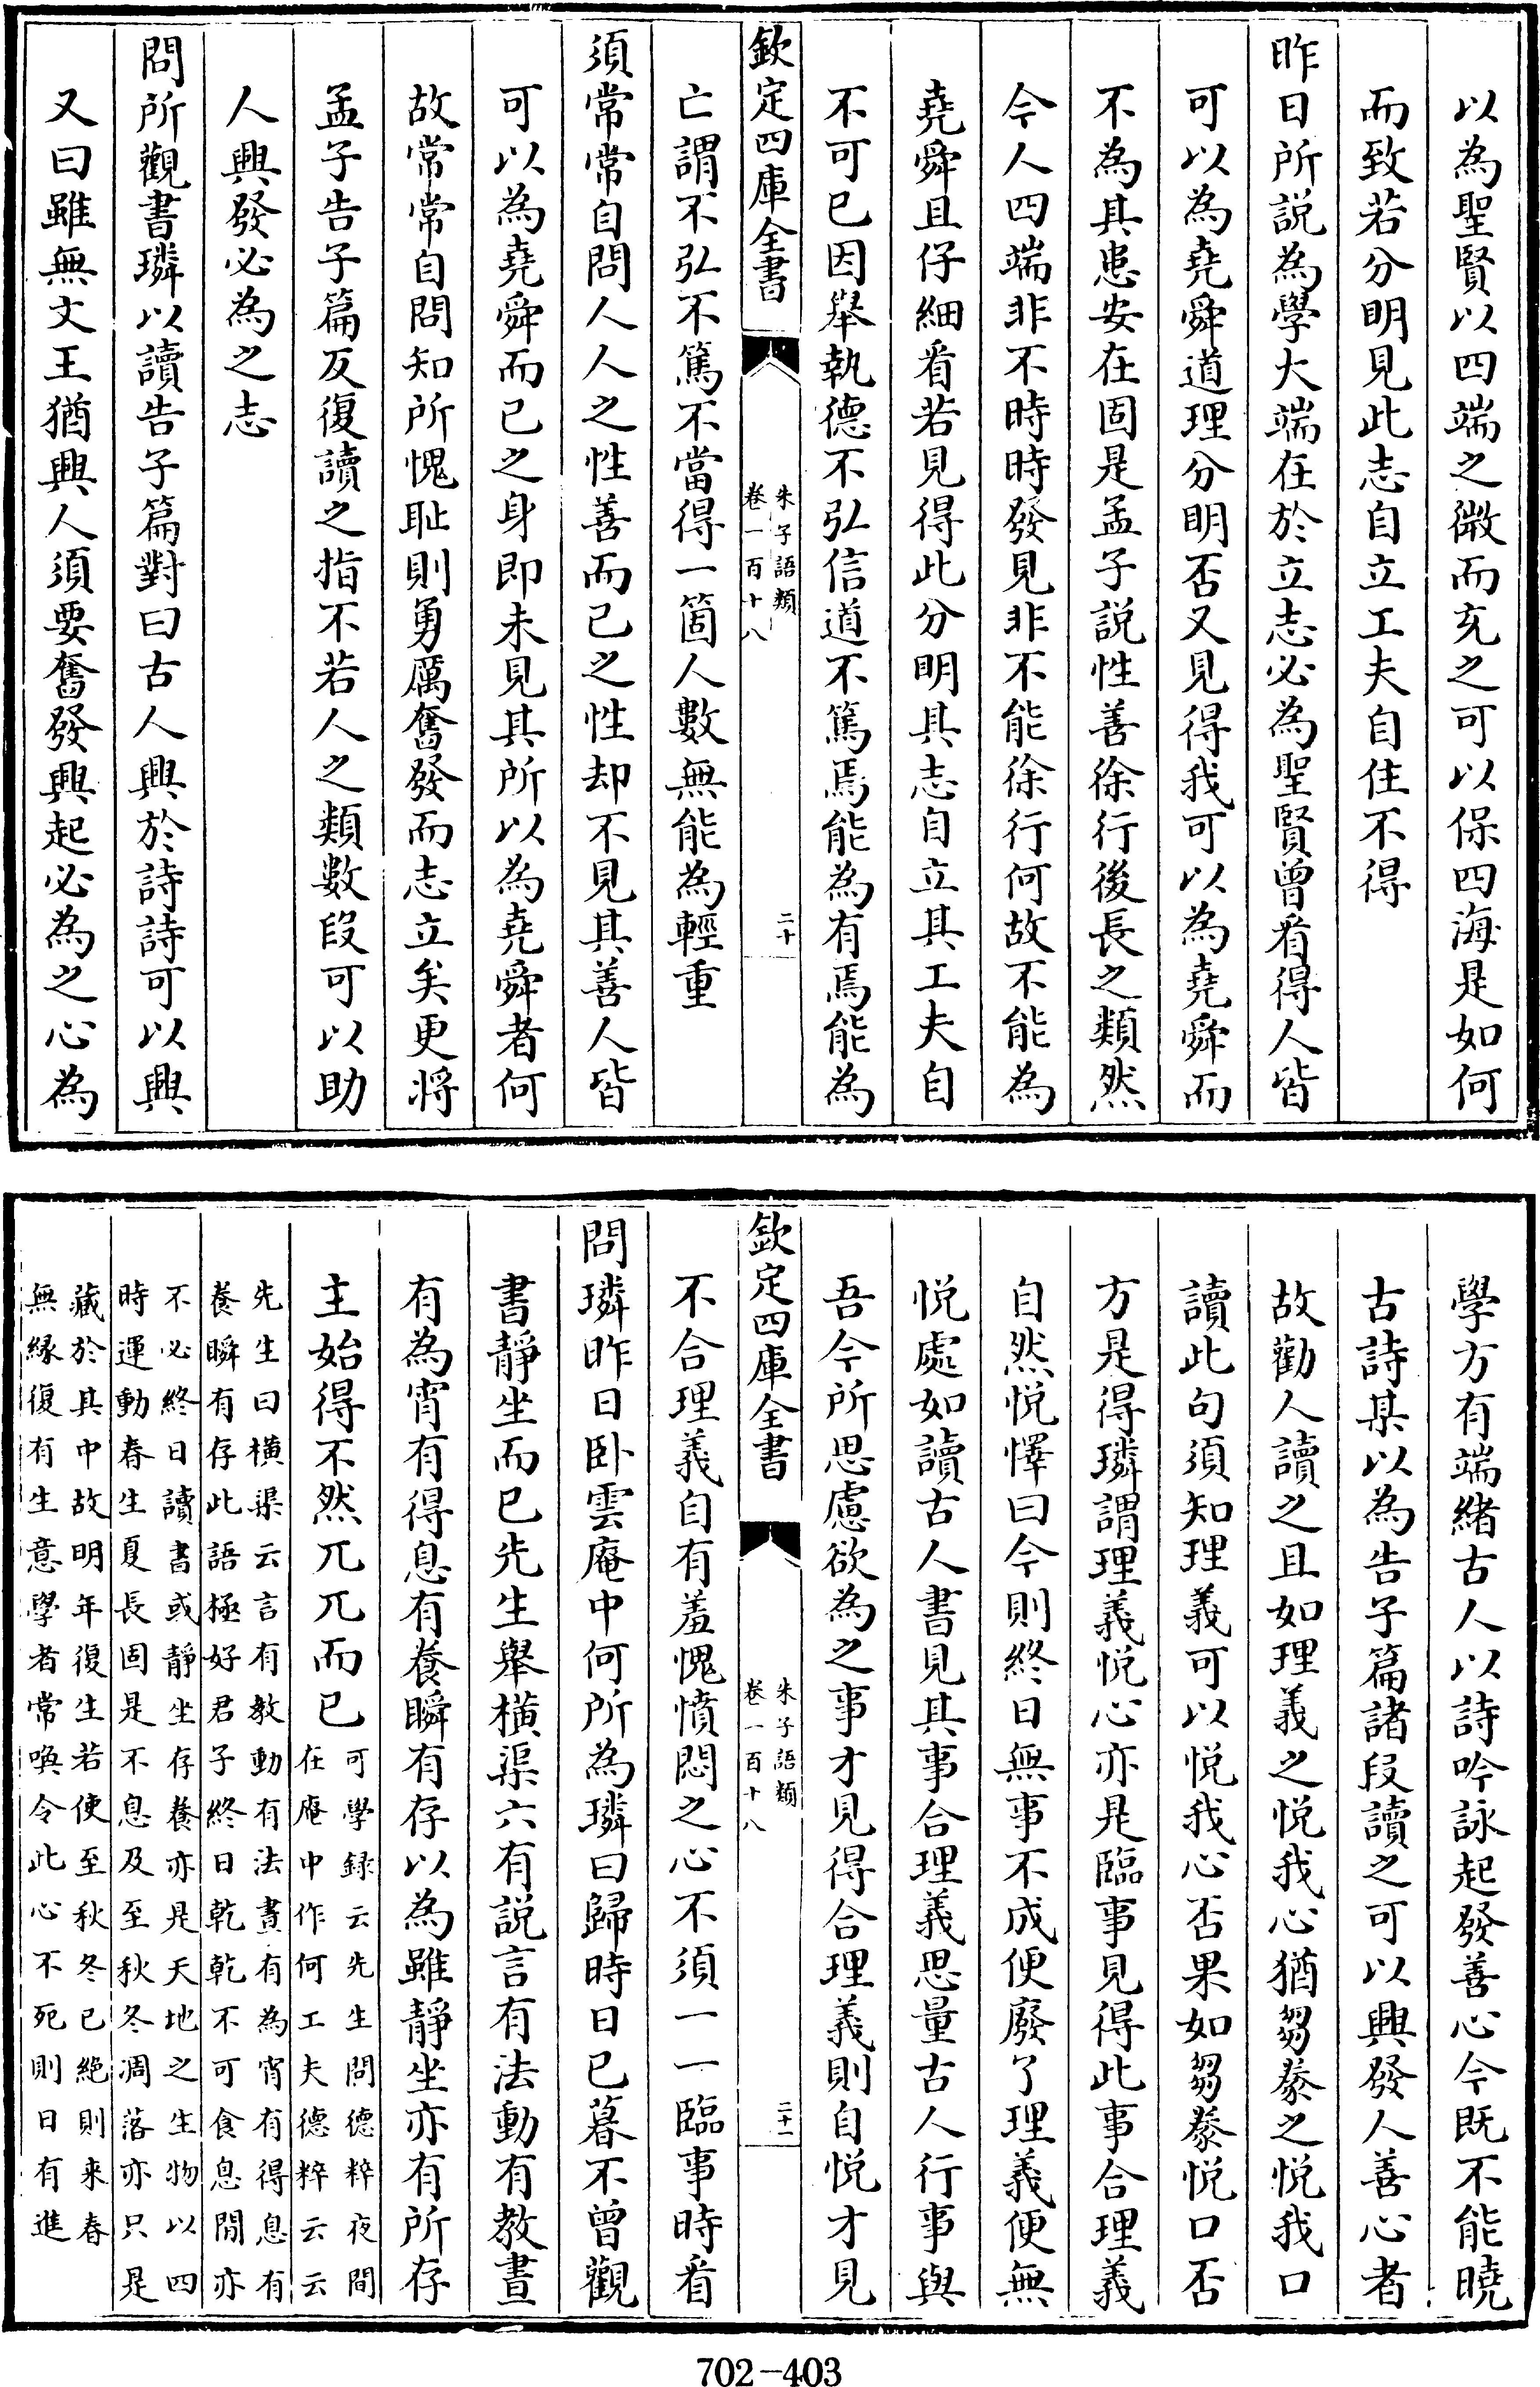 以為聖賢以四端之微而充之可以保四海是如何
而致若分明見此志自立工夫自住不得
昨日所説為學大端在於立志必為聖賢曾㸔得人皆
可以為堯舜道理分明否又見得我可以為堯舜而
不為其患安在固是孟子説性善徐行後長之類然
今人四端非不時時發見非不能徐行何故不能為
堯舜且仔細㸔若見得此分明其志自立其工夫自
不可已因舉執德不弘信道不篤焉能為有焉能為
欽定四庫全書
朱子語類
卷一百十八
二十
亡謂不弘不篤不當得一箇人數無能為輕重
須常常自問人人之性善而已之性却不見其善人皆
可以為堯舜而已之身即未見其所以為堯舜者何
故常常自問知所愧耻則勇厲奮發而志立矣更將
孟子告子篇反復讀之指不若人之類數段可以助
人興發必為之志
問所觀書璘以讀告子篇對曰古人興於詩詩可以興
又曰雖無文王猶興人須要奮發興起必為之心為
學方有端緒古人以詩吟詠起發善心今既不能曉
古詩某以為告子篇諸段讀之可以興發人善心者
故勸人讀之且如理義之悦我心猶芻豢之悦我口
讀此句須知理義可以悦我心否果如芻豢悦口否
方是得璘謂理義悦心亦是臨事見得此事合理義
自然悦懌曰今則終日無事不成便廢了理義便無
悦處如讀古人書見其事合理義思量古人行事與
吾今所思慮欲為之事才見得合理義則自悦才見
欽定四庫全書
朱子語類
卷一百十八
二十一
不合理義自有羞愧憤悶之心不須一一臨事時㸔
問璘昨日卧雲庵中何所為璘曰歸時日已暮不曾觀
書靜坐而已先生舉橫渠六有説言有法動有教晝
有為宵有得息有養瞬有存以為雖靜坐亦有所存
主始得不然兀兀而已可學録云先生問德粹夜間
在庵中作何工夫德粹云云
先生曰橫渠云言有教動有法晝有為宵有得息有
養瞬有存此語極好君子終日乾乾不可食息閒亦
不必終日讀書或靜坐存養亦是天地之生物以四
時運動春生夏長固是不息及至秋冬凋落亦只是
藏於其中故明年復生若使至秋冬已絶則来春
無縁復有生意學者常喚令此心不死則日有進
702-403